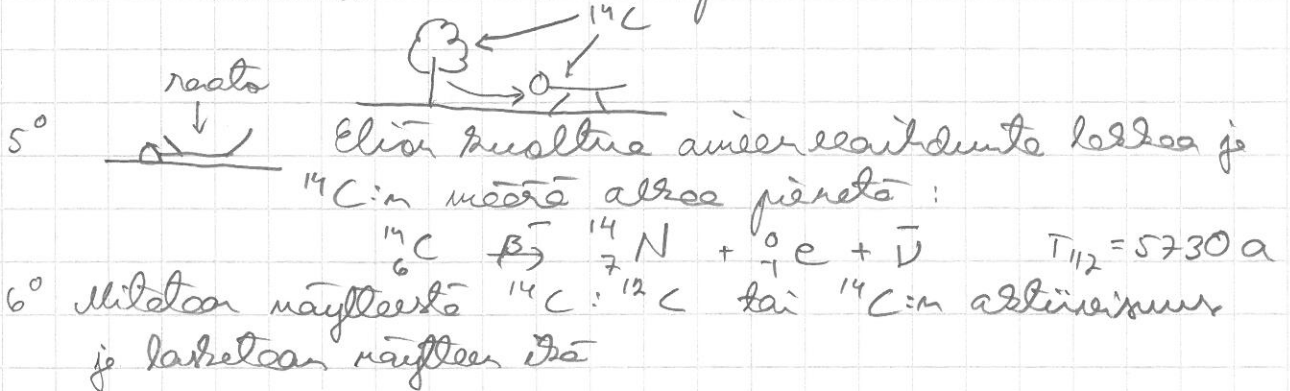 ¹⁴C
raato
5° Eliön kuoltua aineenvaihdunta lakkaa ja
¹⁴C:n määrä alkaa pienetä :
¹⁴₆C β⁻→ ¹⁴₇N + ⁰₋₁e + ν̄ T₁/₂ = 5730 a
6° Mitataan näytteestä ¹⁴C : ¹²C tai ¹⁴C:n aktiivisuus
ja lasketaan näytteen ikä